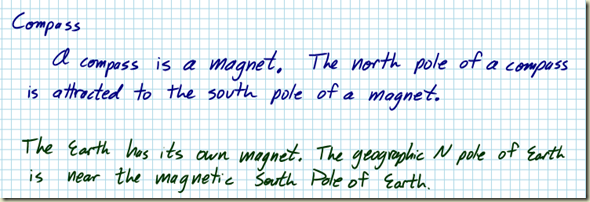 Compass
A compass is a magnet. The north pole of a compass
is attracted to the south pole of a magnet.
The Earth has its own magnet. The geographic N pole of Earth
is near the magnetic South Pole of Earth.